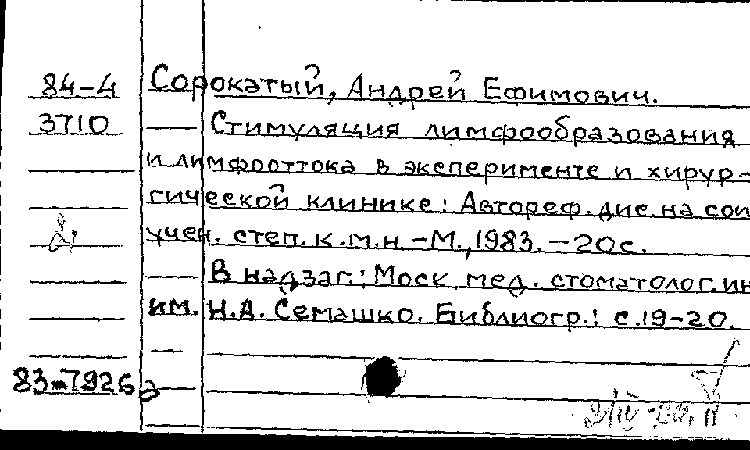 84-4 Сорокатый, Андрей Ефимович.
3710 Стимуляция лимфообразования
и лимфооттока в эксперименте и хирур-
гической клинике: Автореф. дис. на соис
учен. степ. к.м.н. -М., 1983. -20с.
В надзаг.: Моск. мед. стоматолог. ин
им. Н.А. Семашко. Библиогр.: с.19-20.
83-7926а